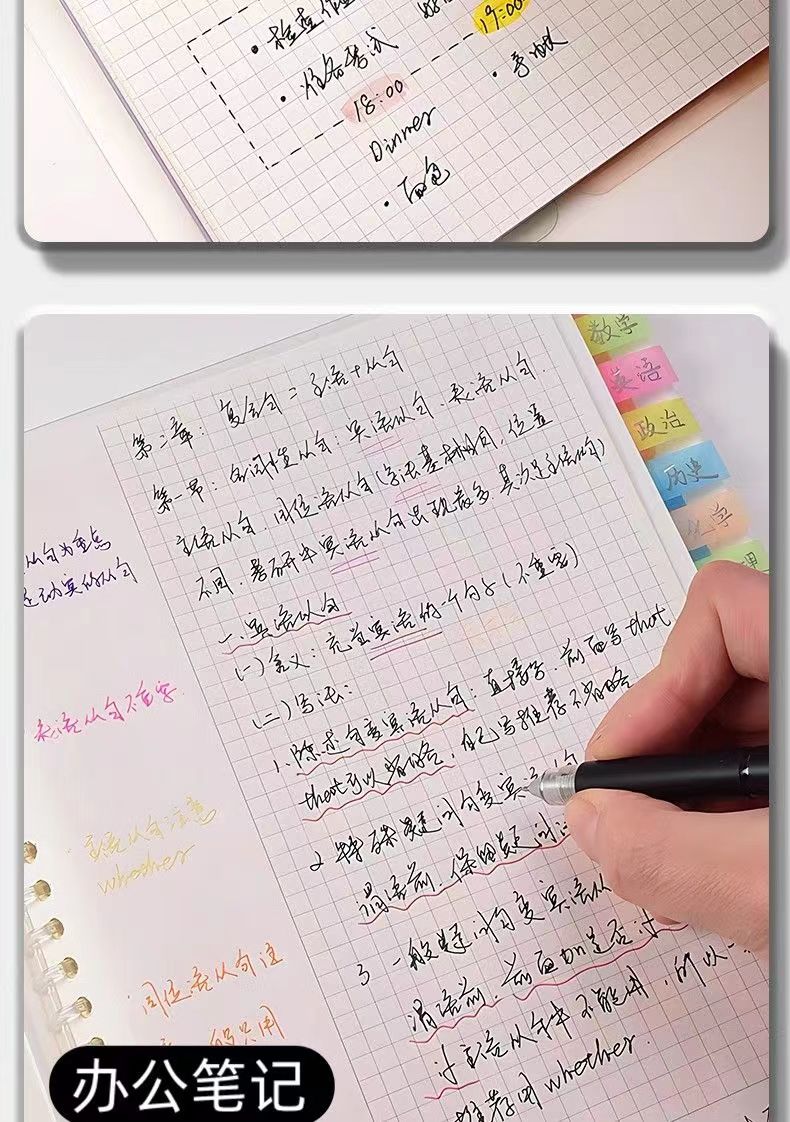 • 检查作业
19:00
• 准备考试
• 手帐
18:00
Dinner
• 面包
数学
英语
政治
历史
化学
理
第二章：复合句＝主语＋从句
第一节：名词性从句：宾语从句．表语从句．
主语从句．同位语从句(写法基本相同，位置
不同．考研中宾语从句出现最多．其次是主语从句)
一．宾语从句
(一)含义：充当宾语的一个句子(不重要)
(二)写法：
1.陈述句变宾语从句：直接写．前面写that
that可以省略，自己写推荐不省略
2 特殊疑问句变宾语从句
谓语前．保留疑问词
3 一般疑问句变宾语从
谓语前．前面加是否
主语从句中不能用，所以一
推荐用whether.
从句为重点
表语从句不重要
主语从句注意
whether
同位语从句注
一般只用
办公笔记